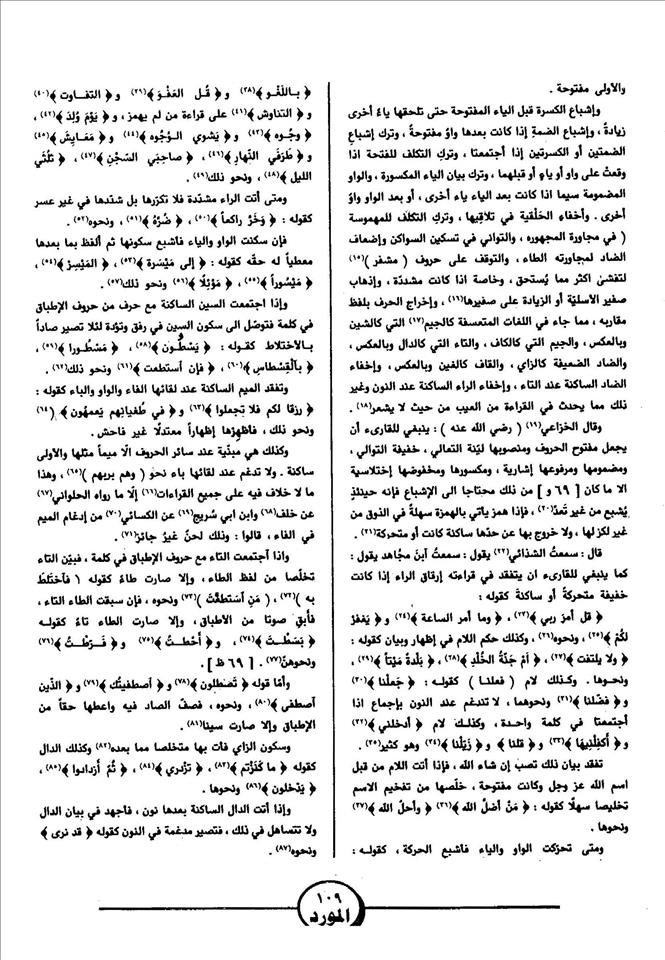 والأولى مفتوحة .
وإشباع الكسرة قبل الياء المفتوحة حتى تلحقها ياءً أخرى
زيادةً ، وإشباع الضمةِ إذا كانت بعدها واوٌ مفتوحةٌ ، وترك إشباع
الضمتين أو الكسرتين إذا أجتمعتا ، وتركِ التكلف للفتحة اذا
وقعتْ على واو أو ياءٍ أو قبلهما ، وتركِ بيان الياء المكسورة ، والواو
المضمومة سيما اذا كانت بعد الياء ياء أخرى ، أو بعد الواو واوٌ
أخرى . وأخفاءِ الحَلْقية في تلاقيها ، وتركِ التكلّف للمهموسة
( في مجاورة المجهوره ، والتواني في تسكين السواكن وإضعاف
الضاد لمجاورته الطاء ، والتوقف على حروف ( مشفر )(١٥)
لتفشئ اكثر مما يُستحق ، وخاصة اذا كانت مشددّة ، وإذهاب
صفير الأسليّة أو الزيادة على صفيرها(١٦) ، وإخراج الحرف بلفظ
مقاربه ، مما جاء في اللغات المتعسفة كالجيم(١٧) التي كالشين
وبالعكس ، والجيم التي كالكاف ، والتاء التي كالدال وبالعكس ،
والضاد الضعيفة كالزاي ، والقاف كالغين وبالعكس ، وإخفاء
الضاد الساكنة عند التاء ، وإخفاء الراء الساكنة عند النون وغير
ذلك مما يحدث في القراءة من العيب من حيث لا يشعر(١٨) .
وقال الخزاعي(١٩) ( رضي الله عنه ) : ينبغي للقارىء أن
يجعل مفتوح الحروف ومنصوبها ليّنة التعالي ، خفيفة التوالي ،
ومضمومها ومرفوعها إشارية ، ومكسورها ومخفوضها إختلاسية
الا ما كان [ ٦٩ و ] من ذلك محتاجا الى الإشباع فإنه حينئذٍ
يُشبع من غير تعدٍّ(٢٠) ، وإذا همز ياتي بالهمزة سهلةً في الذوق من
غير لكزٍ لها ، ولا خروج بها عن حدّها ساكنة كانت أو متحركة(٢١) .
قال : سمعتُ الشذائي(٢٢) يقول : سمعتُ أبنَ مجاهد يقول :
كما ينبغي للقارىء ان يتفقد في قراءته إرقاق الراء إذا كانت
خفيفة متحركةً أو ساكنةً كقوله :
﴿ قل أمرَ ربي ﴾(٢٣) ، ﴿ وما أمر الساعة ﴾(٢٤) و ﴿ يَغفرْ
لكُمْ ﴾(٢٥) ، ونحوه(٢٦) ، وكذلك حكم اللام في إظهار وبيان كقوله :
﴿ ولا يلتفت ﴾(٢٧) ، ﴿ أمْ جَنّةُ الخُلْدِ ﴾(٢٨) ، ﴿ بَلْدَةً مَيْتاً ﴾(٢٩) ،
ونحوها . وكذلك لام ( فعلنا ) كقوله : ﴿ جَعلْنا ﴾(٣٠)
و ﴿ فضّلنا ﴾(٣١) ونحوهما ، لا تندغم عند النون بإجماع اذا
أجتمعتا في كلمة واحدة ، وكذلك لام ﴿ أدخلني ﴾(٣٢)
و ﴿ أكفِلْنيها ﴾(٣٣) و ﴿ قلنا ﴾ و ﴿ زيّلْنا ﴾(٣٤) وهو كثير(٣٥) .
تفقد بيان ذلك تصب إن شاء الله ، فإذا أتت اللام من قبل
اسم الله عز وجل وكانت مفتوحة ، خلّصها من تفخيم الاسم
تخليصا سهلًا كقوله : ﴿ مَنْ أضلَّ الله ﴾(٣٦) ﴿ وأحلَّ الله ﴾(٣٧)
ونحوها .
ومتى تحركت الواو والياء فاشبع الحركة ، كقوله :
﴿ باللغْوِ ﴾(٣٨) و ﴿ قُل العَفْوَ ﴾(٣٩) و ﴿ التفاوت ﴾(٤٠)
و ﴿ التناوش ﴾(٤١) على قراءة من لم يهمز ، و ﴿ يَوْمَ وُلِدَ ﴾(٤٢) ،
﴿ وجُوه ﴾(٤٣) و ﴿ يَشوي الوُجُوه ﴾(٤٤) و ﴿ مَعايِشَ ﴾(٤٥)
و ﴿ طَرَفَي النَّهارِ ﴾(٤٦) ، ﴿ صاحبَي السّجْنِ ﴾(٤٧) ، ﴿ ثلُثَي
الليل ﴾(٤٨) ، ونحو ذلك(٤٩) .
ومتى أتت الراء مشدّدة فلا تكرّرها بل شدّدها في غير عسر
كقوله : ﴿ وخَرَّ راكعاً ﴾(٥٠) ، ﴿ ضُرَّهُ ﴾(٥١) ، ونحوه(٥٢) .
فإن سكنت الواو والياء فاشبع سكونها ثم ألفظ بما بعدها
معطياً له حقّه كقوله : ﴿ إلى مَيْسَرة ﴾(٥٣) ، ﴿ المَيْسِرَ ﴾(٥٤) ،
﴿ مَيْسُوراً ﴾(٥٥) ، ﴿ مَوْئِلًا ﴾(٥٦) ونحو ذلك(٥٧) .
وإذا اجتمعت السين الساكنة مع حرف من حروف الإطباق
في كلمة فتوصّل الى سكون السين في رفق وتؤدة لئلا تصير صاداً
بالأختلاط كقوله : ﴿ يَسْطُون ﴾(٥٨) ، ﴿ مَسْطُورا ﴾(٥٩) ،
﴿ بِالقُسْطاسِ ﴾(٦٠) ، ﴿ فإن أستطعت ﴾(٦١) ونحو ذلك(٦٢) .
وتفقد الميم الساكنة عند لقائها الفاء والواو والياء كقوله :
﴿ رزقا لكم فلا تجعلوا ﴾(٦٣) و ﴿ في طُغيانِهم يَعمهون ﴾(٦٤)
ونحو ذلك ، فأظهرْها إظهاراً معتدلًا غير فاحش .
وكذلك هي مبيّنة عند سائر الحروف الّا ميماً مثلها والأولى
ساكنة . ولا تدغم عند لقائها باء نحو ( وهم بربهم )(٦٥) ، وهذا
ما لا خلاف فيه على جميع القراءات(٦٦) إلّا ما رواه الحلواني(٦٧)
عن خلف(٦٨) وابن ابي سُريج(٦٩) عن الكسائي(٧٠) من إدغام الميم
في الفاء ، قالوا : وذلك لحنٌ غيرُ جائز(٧١) .
واذا أجتمعت التاء مع حروف الإطباق في كلمة ، فبيّن التاء
تخلّصا من لفظ الطاء ، وإلا صارت طاءً كقوله ﴿ فأختلَطَ
به ﴾(٧٢) ، ﴿ مَنِ أستَطعْتَ ﴾(٧٣) ونحوه ، فإن سبقت الطاء التاء ،
فأبقِ صوتا من الأطباق ، وإلا صارت الطاء تاءً كقوله
﴿ بَسَطْتَ ﴾(٧٤) ، ﴿ أَحَطتُ ﴾(٧٥) و ﴿ فَرَّطتُ ﴾(٧٦)
ونحوهنّ(٧٧) . [ ٦٩ ظ ] .
وأمّا قوله ﴿ تَصْطلون ﴾(٧٨) و ﴿ أصطفيتُك ﴾(٧٩) و ﴿ الذّين
أصطفى ﴾(٨٠) ، ونحوه ، فصفّ الصاد فيه واعطها حقاً من
الإطباق وإلا صارت سينا(٨١) .
وسكون الزاي فات بها متخلصا مما بعده(٨٢) وكذلك الدال
كقوله ﴿ ما كَنَزْتُم ﴾(٨٣) ، ﴿ تزْدَري ﴾(٨٤) ، ﴿ ثُمَّ أزدادوا ﴾(٨٥) ،
﴿ يَدْخلون ﴾(٨٦) ونحوها .
وإذا أتت الدال الساكنة بعدها نون ، فأجهد في بيان الدال
ولا تتساهل في ذلك ، فتصير مدغمة في النون كقوله ﴿ قد نرى ﴾
ونحوه(٨٧) .
١٠٩
المورد